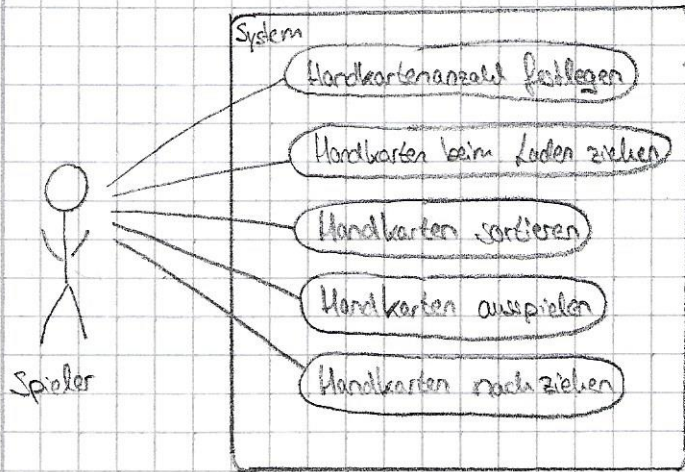 System
Handkartenanzahl festlegen
Handkarten beim Laden ziehen
Handkarten sortieren
Handkarten ausspielen
Handkarten nachziehen
Spieler